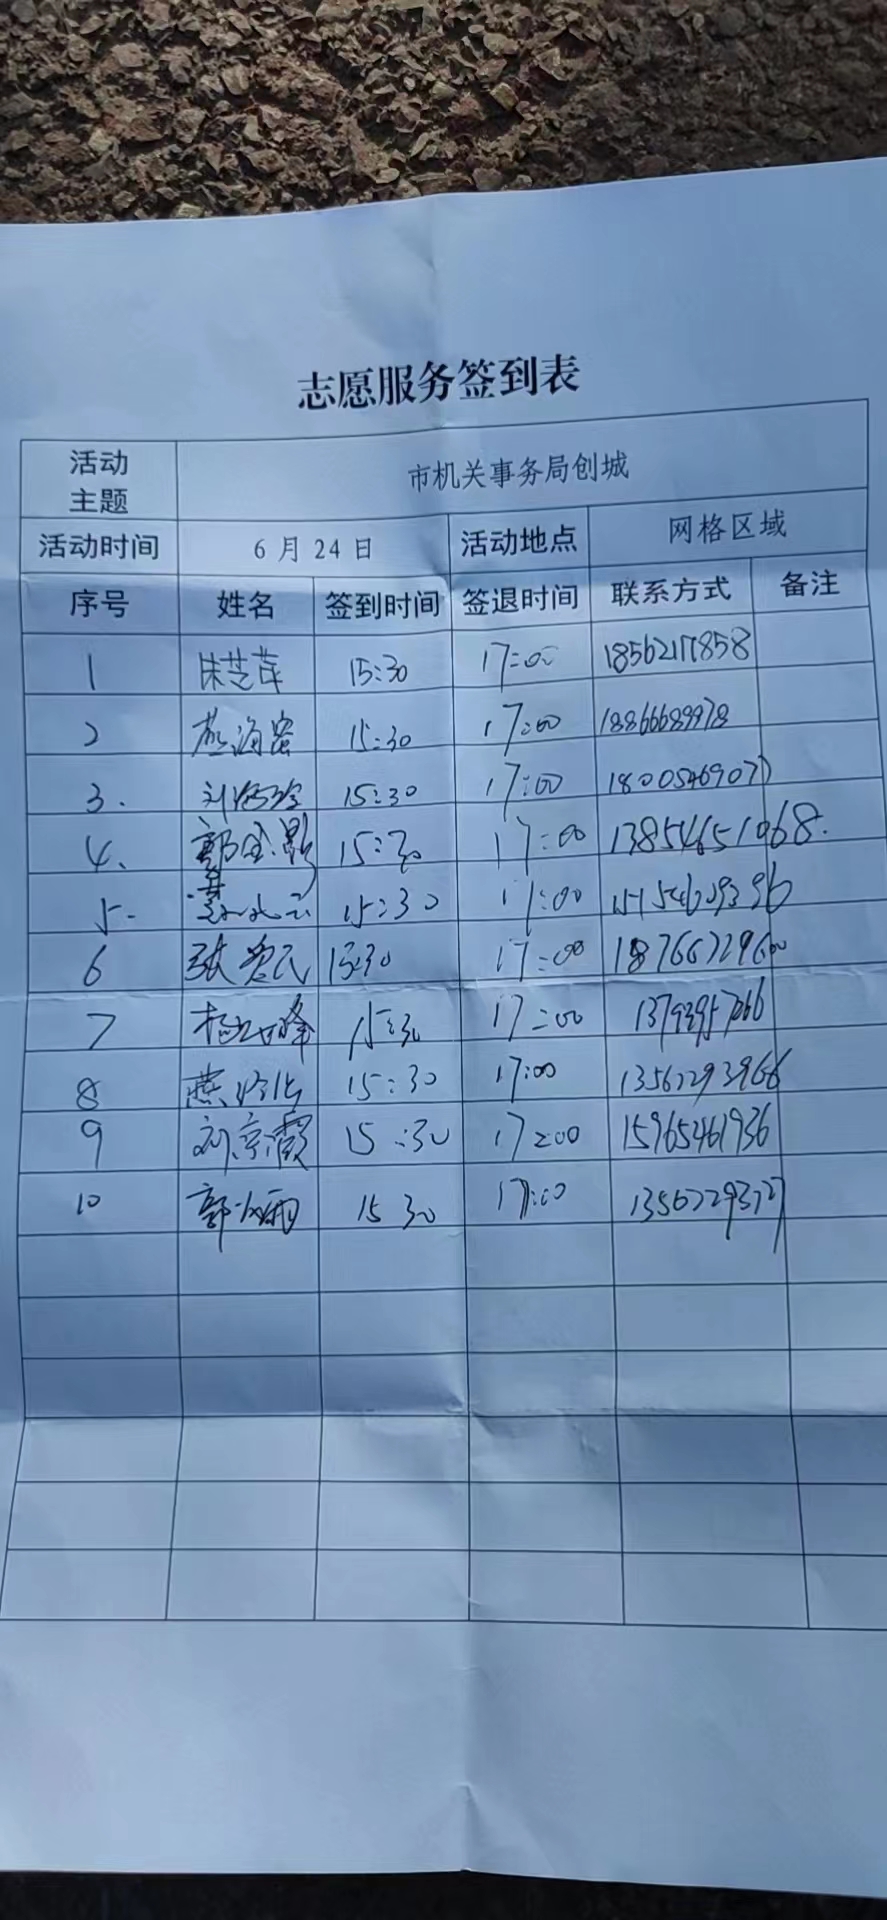 志愿服务签到表
活动主题 市机关事务局创城
活动时间 6月24日 活动地点 网格区域
序号 姓名 签到时间 签退时间 联系方式 备注
1 朱芝萍 15:30 17:00 18562177858
2 海 15:30 17:00 18866689978
3. 刘 15:30 17:00
4. 郭 15:30 17:00 13854651068.
5. 15:30 17:00
6 张 15:30 17:00 18766729600
7 峰 15:30 17:00
8 燕 15:30 17:00 13562293966
9 刘京霞 15:30 17:00 15965461936
10 郭 雨 15 30 17:00